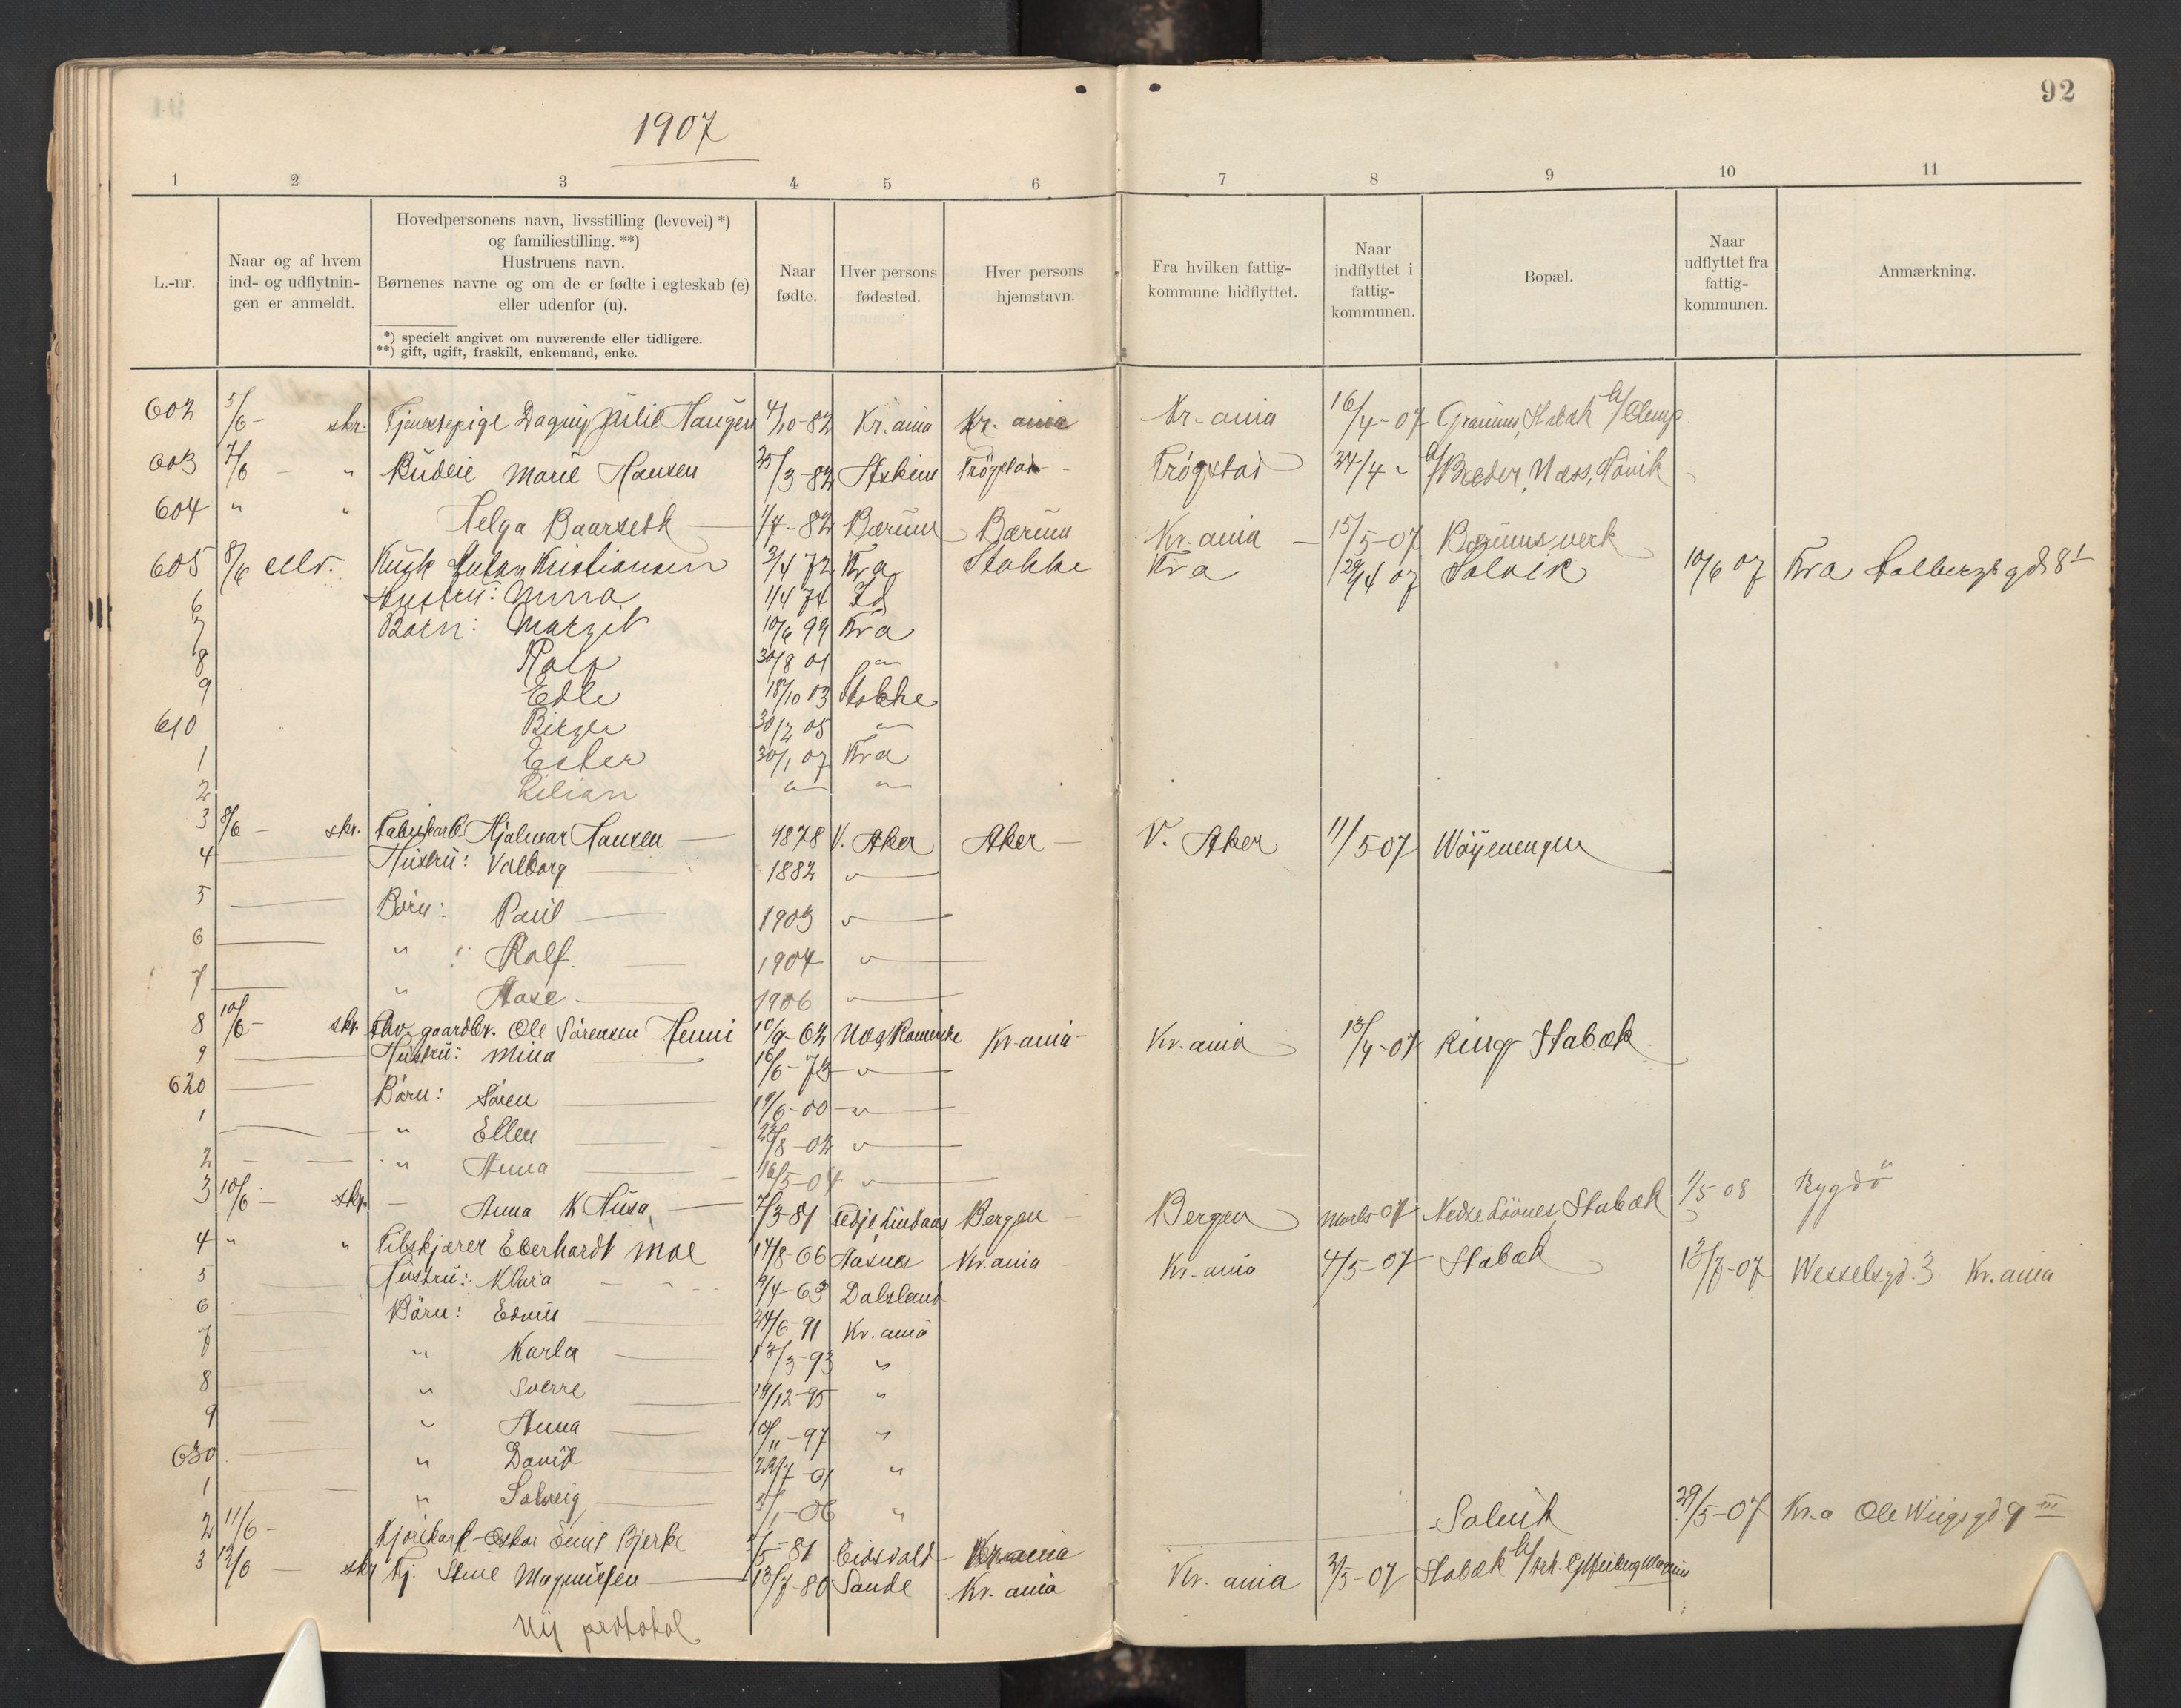 92
1907
1 2 3 4 5 6 7 8 9 10 11
L.-nr.
Naar og af hvem ind- og udflytnin- gen er anmeldt.
Hovedpersonens navn, livsstilling (levevei) *) og familiestilling. **) Hustruens navn. Børnenes navne og om de er fødte i egteskab (e) eller udenfor (u).
*) specielt angivet om nuværende eller tidligere.
**) gift, ugift, fraskilt, enkemand, enke.
Naar fødte.
Hver persons fødested.
Hver persons hjemstavn.
Fra hvilken fattig- kommune hidflyttet.
Naar indflyttet i fattig- kommunen.
Bopæl.
Naar udflyttet fra fattig- kommunen.
Anmærkning.
602 5/6 - skr. Tjenestepige Dagny Julie Haugen 4/10-82 Kr.ania Kr.ania Kr.ania 16/4-07 Stabæk
603 7/6 - " Budeie Marie Hansen 25/3-82 Askim Trögstad Trögstad 24/4 " Næss, Hövik
604 " " Helga Baarseth 1/7-82 Bærum Bærum Kr.ania 15/5-07 Bærumsverk
605 8/6 Kusk Kristiansen 2/4 72 Kra Stokke Kra 29/4 07 Solvik 10/6 07 Kra Holbergsgd 8 I
6 Hustru: Nina 1/4 74
7 Børn: Margit 10/6 99 Kra
8 Rolf 30/8 01 "
9 Edle 18/10 03 Stokke
610 Birger 30/2 05 "
1 Ester 30/1 07 Kra
2 Lilian " "
3 8/6 - skr. Fabrikarb. Hjalmar Hansen 1878 V. Aker Aker V. Aker 11/5 07 Wöyenengen
4 Hustru: Valborg 1882 "
5 Börn: Paul 1903 "
6 " : Rolf. 1904 "
7 " Aase 1906 "
8 10/6 - skr. gaardbr. Ole Sörensen Henni 10/9-62 Kr.ania Kr.ania 13/4-07 Ring Stabæk
9 Hustru: Mina 16/6-73 "
620 Börn: Sören 19/6-00 "
1 " Ellen 22/8-02 "
2 " Anna 16/5-04 "
3 10/6 - skr. - Anna K Husa 7/3-81 Lindaas Bergen Bergen Marts 07 Stabæk 1/5-08 Bygdö
4 " " Tilskjærer Eberhardt Moe 14/8-66 Aasnes Kr.ania Kr.ania 4/5-07 Stabæk 13/7-07 Wesselsgd. 3 Kr.ania
5 Hustru: Klara 9/4-63 Dalsland
6 Börn: Edvin 24/6-91 Kr.ania
7 " Karla 13/3-93 "
8 " Sverre 19/12-95 "
9 " Anna 10/11-97 "
630 " David 22/7-01 "
1 " Solveig 5/1-06 "
2 11/6 - Kjörekarl - Oskar Emil Bjerke 2/5-81 Eidsvold Kr.ania Solvik 29/5-07 Kr.a Ole Wiigs gd. 9 III
3 12/6 - skr Tj. Magnussen 13/7-80 Sande Kr.ania Kr.ania 2/5-07 Stabæk
Ny protokol